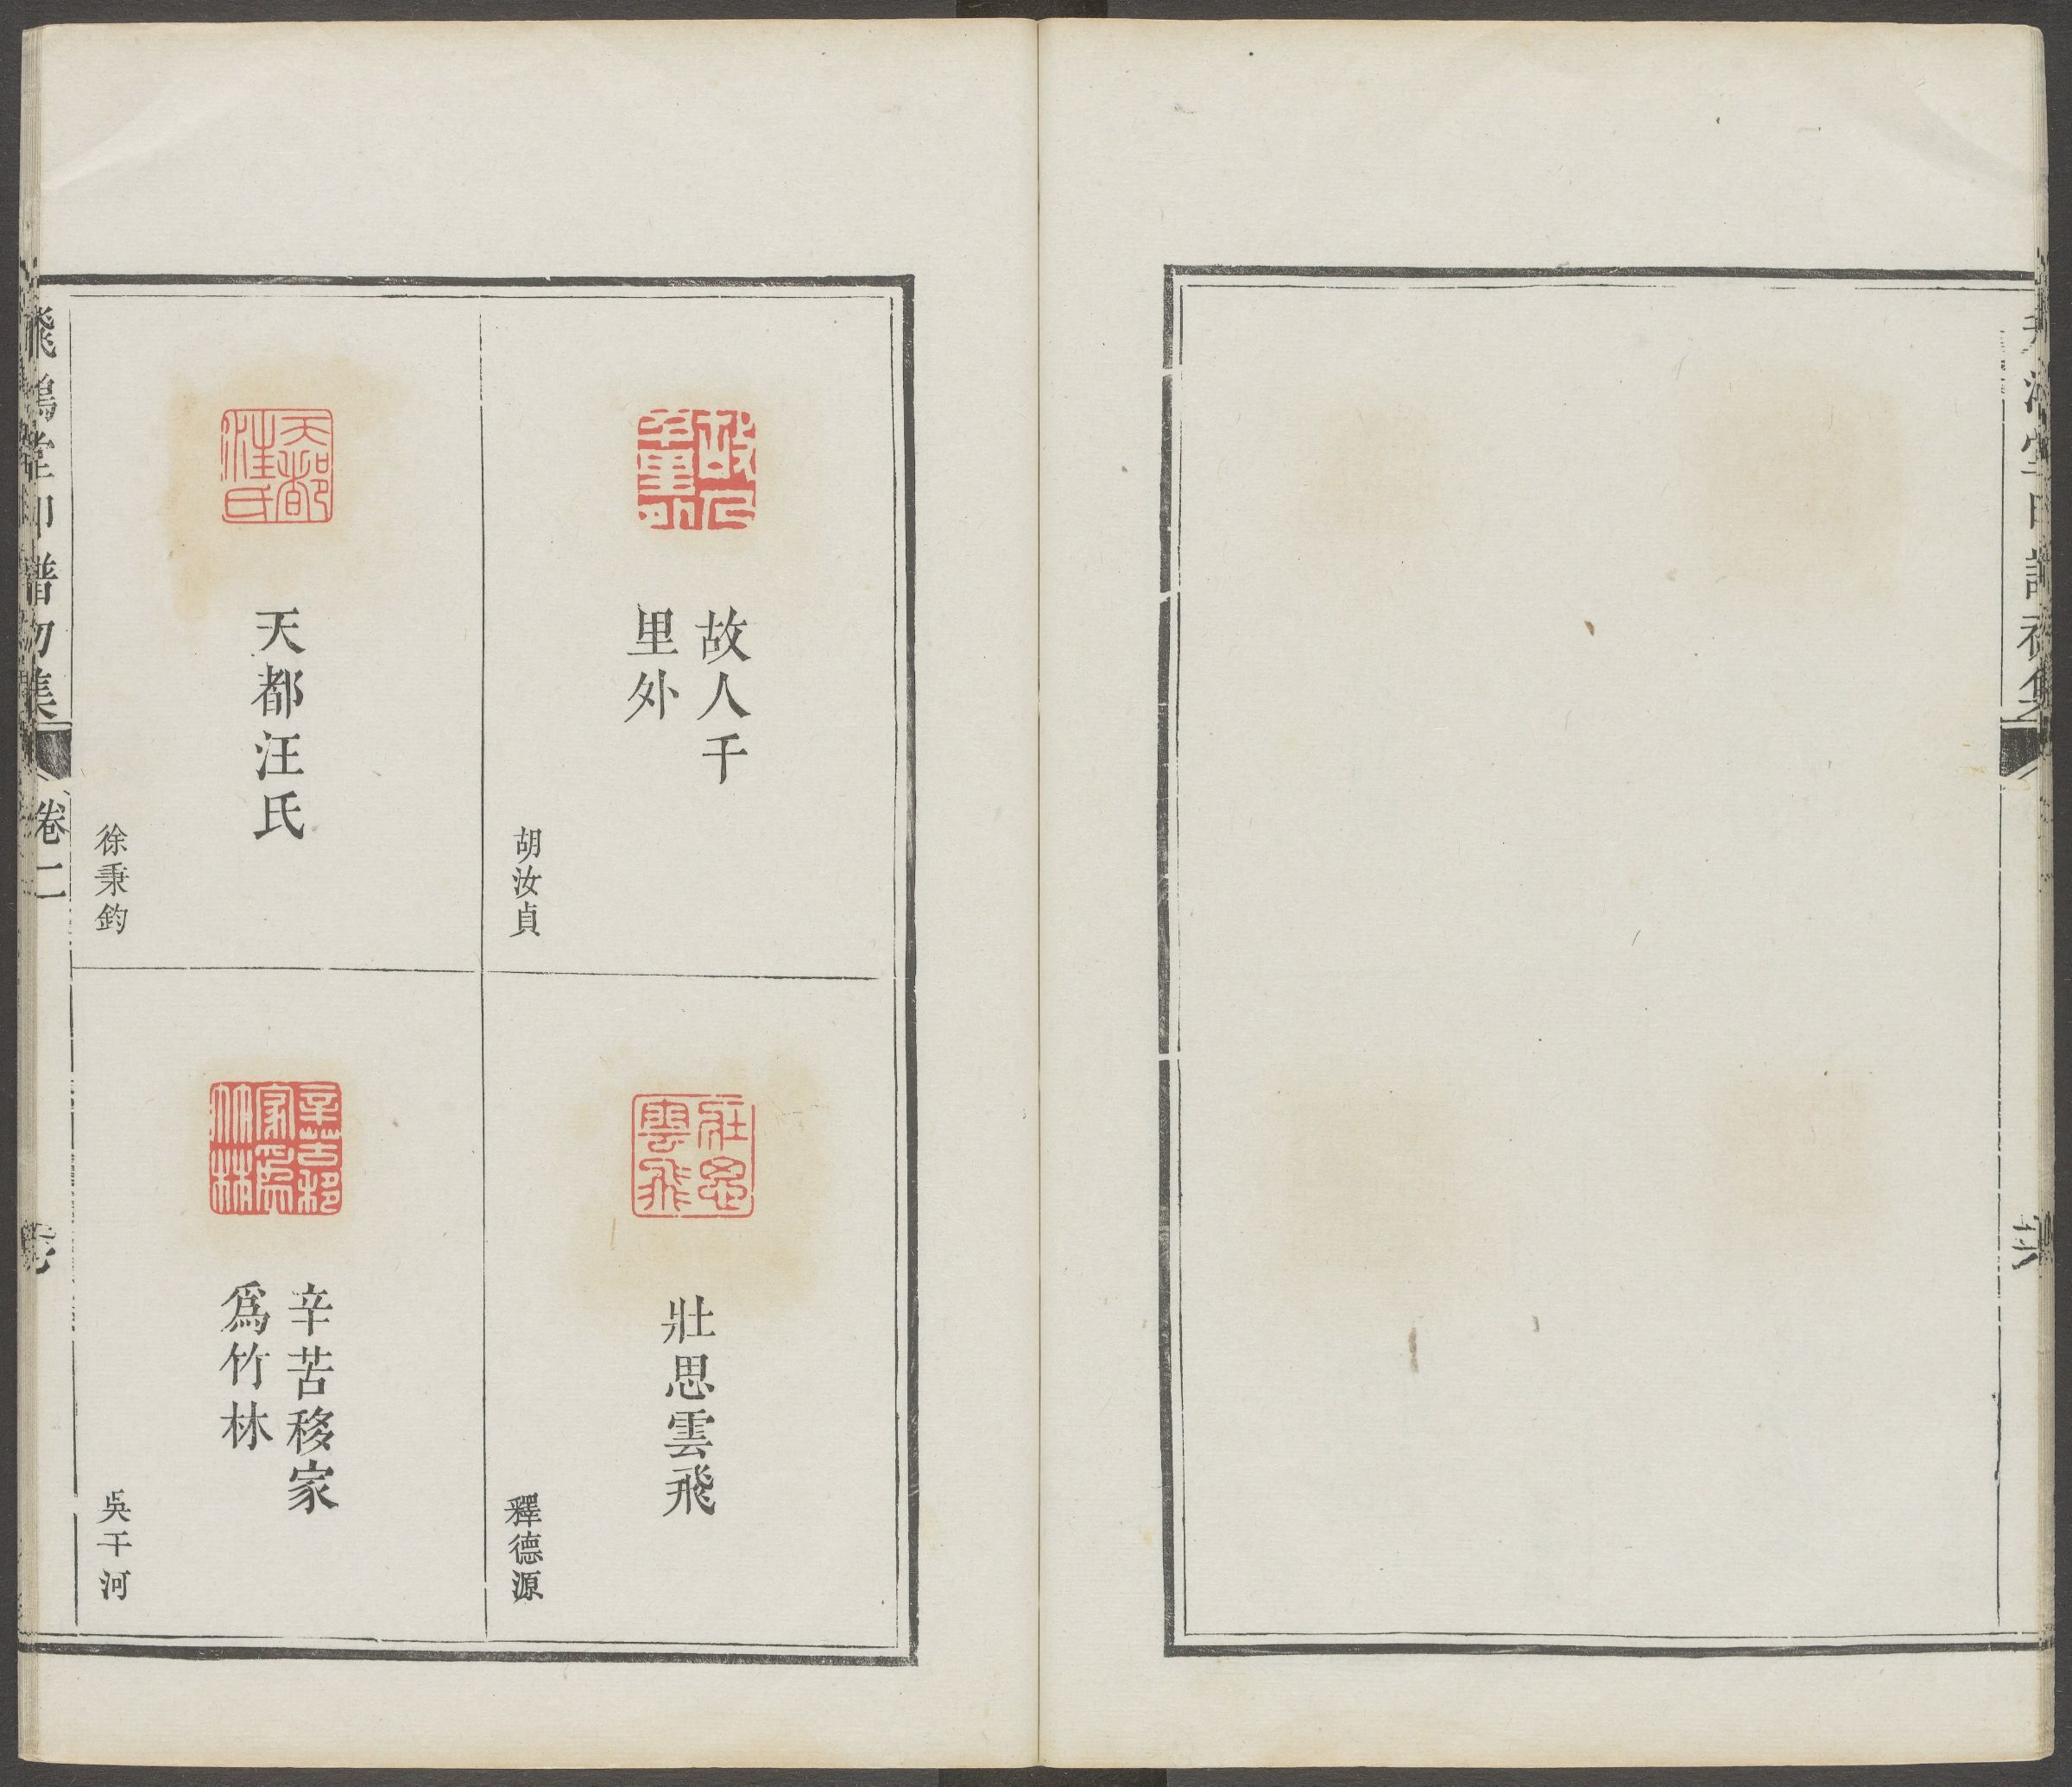 故人千
里外
胡汝貞
壯思雲飛
釋德源
天都汪氏
徐秉鈞
辛苦移家
爲竹林
吳干河
飛鴻堂印譜初集
卷二